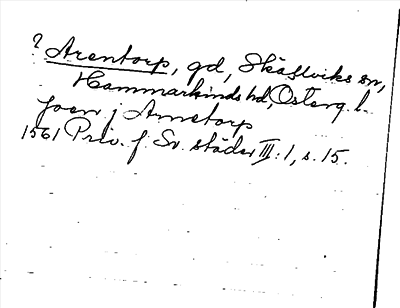 ? Arentorp, gd, Skällviks sn,
Hammarkinds hd, Österg. l.
Joen j Arnetorp
1561 Priv. f. Sv. städer III:1, s. 15.